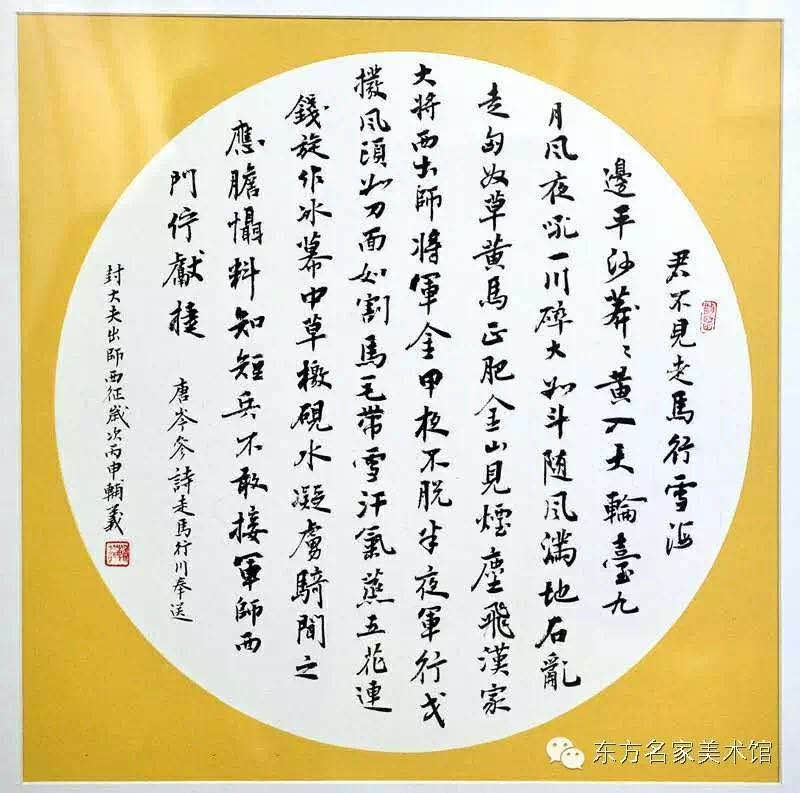 君不見走馬行雪海
邊平沙莽〻黃入天輪臺九
月風夜吼一川碎大如斗随風满地石亂
走匈奴草黃馬正肥金山見煙塵飛漢家
大將西出師將軍金甲夜不脱半夜軍行戈
撥風頭如刀面如割馬毛帶雪汗氣蒸五花連
錢旋作冰幕中草檄硯水凝虜騎聞之
應膽懾料知短兵不敢接軍師西
門佇獻捷 唐岑參詩走馬行川奉送
封大夫出師西征歲次丙申輔義
东方名家美术馆